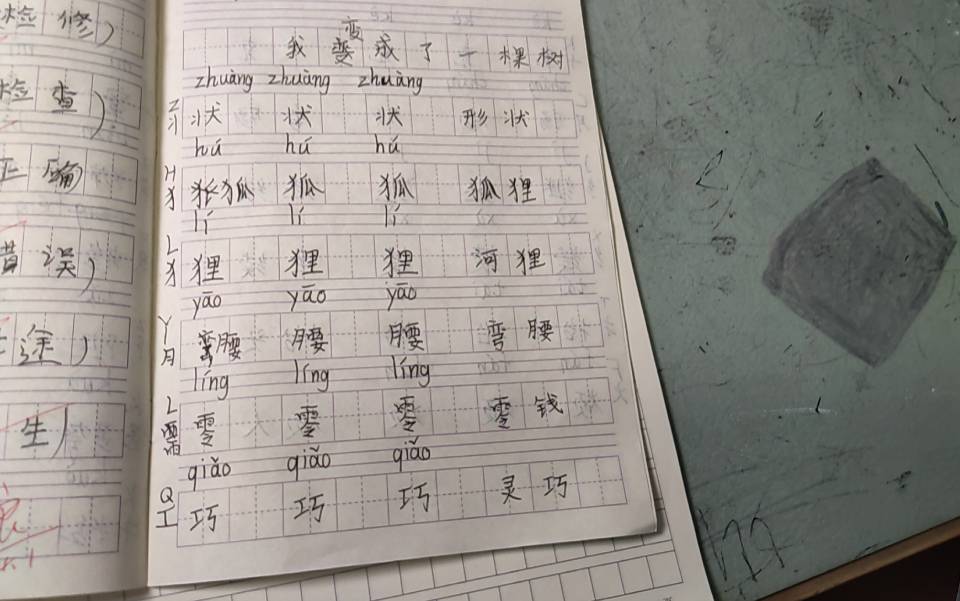 检修)
检查)
输
错误)
途)
生)
变
我变成了一棵树
zhuàng zhuàng zhuàng
Z 丬 状 状 状 形状
hú hú hú
H 犭 狐 狐 狐 狐狸
lí lí lí
L 犭 狸 狸 狸 河狸
yāo yāo yāo
Y 月 弯腰 腰 腰 弯腰
líng líng líng
L 零 零 零 零钱
qiǎo qiǎo qiǎo
Q 工 巧 巧 巧 灵巧